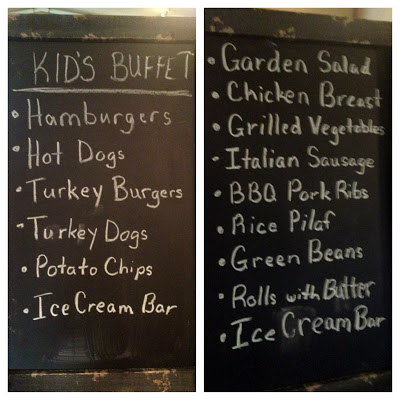 KID'S BUFFET
• Hamburgers
• Hot Dogs
• Turkey Burgers
• Turkey Dogs
• Potato Chips
• Ice Cream Bar
• Garden Salad
• Chicken Breast
• Grilled Vegetables
• Italian Sausage
• BBQ Pork Ribs
• Rice Pilaf
• Green Beans
• Rolls with Butter
• Ice Cream Bar